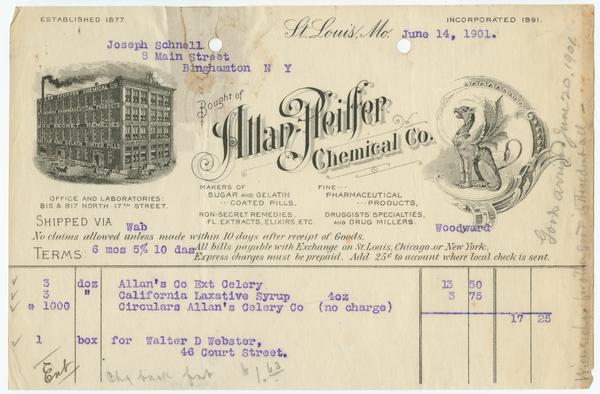 ESTABLISHED 1877.
INCORPORATED 1891.
St. Louis, Mo. June 14, 1901.
Joseph Schnell
8 Main Street
Binghamton N Y
Bought of
Allan-Pfeiffer
Chemical Co.
OFFICE AND LABORATORIES:
815 & 817 NORTH 17TH STREET.
MAKERS OF
SUGAR AND GELATIN
COATED PILLS,
NON-SECRET REMEDIES,
FL. EXTRACTS, ELIXIRS, ETC.
FINE
PHARMACEUTICAL
PRODUCTS,
DRUGGISTS' SPECIALTIES,
AND DRUG MILLERS.
SHIPPED VIA Wab
Woodward
No claims allowed unless made within 10 days after receipt of Goods.
TERMS 6 mos 5% 10 das
All bills payable with Exchange on St. Louis, Chicago or New York.
Express charges must be prepaid. Add 25¢ to account where local check is sent.
3 doz Allan's Co Ext Celery 13 50
3 " California Laxative Syrup 4oz 3 75
* 1000 Circulars Allan's Celery Co (no charge)
17 25
1 box for Walter D Webster,
46 Court Street.
Ent
Chg back frt $1.63
Goods arrived June 20, 1901